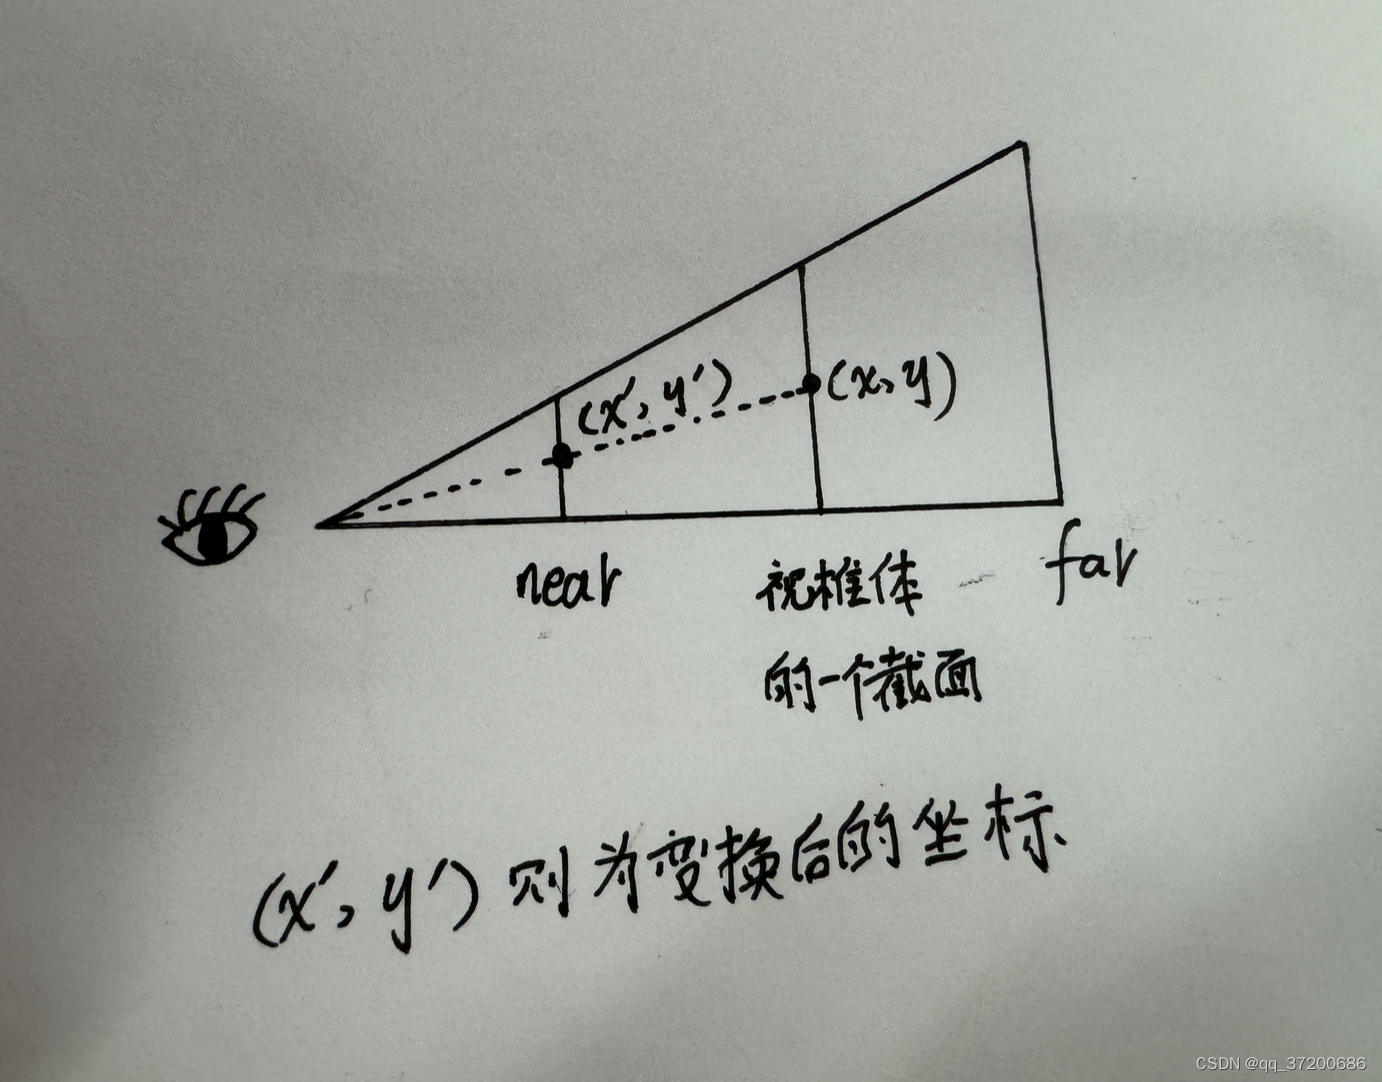 (x′, y′)
(x, y)
near
视椎体
far
的一个截面
(x′, y′) 则为变换后的坐标
CSDN @qq_37200686